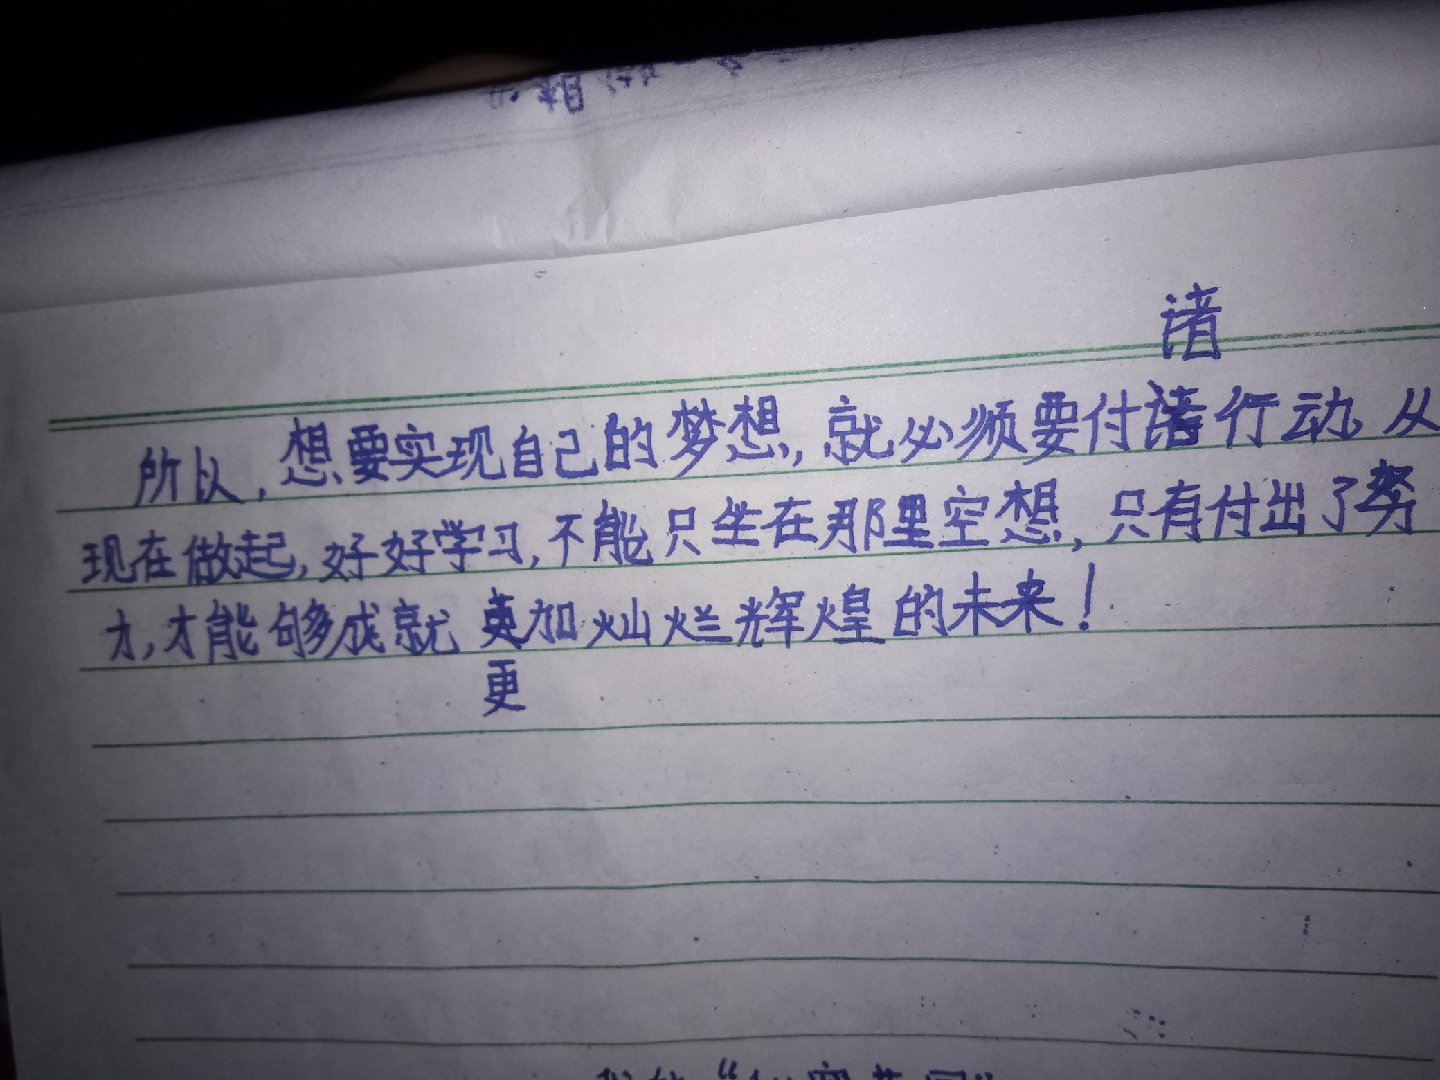 诸
所以，想要实现自己的梦想，就必须要付诸行动，从
现在做起，好好学习，不能只坐在那里空想，只有付出了努
力，才能够成就更加灿烂辉煌的未来！
更